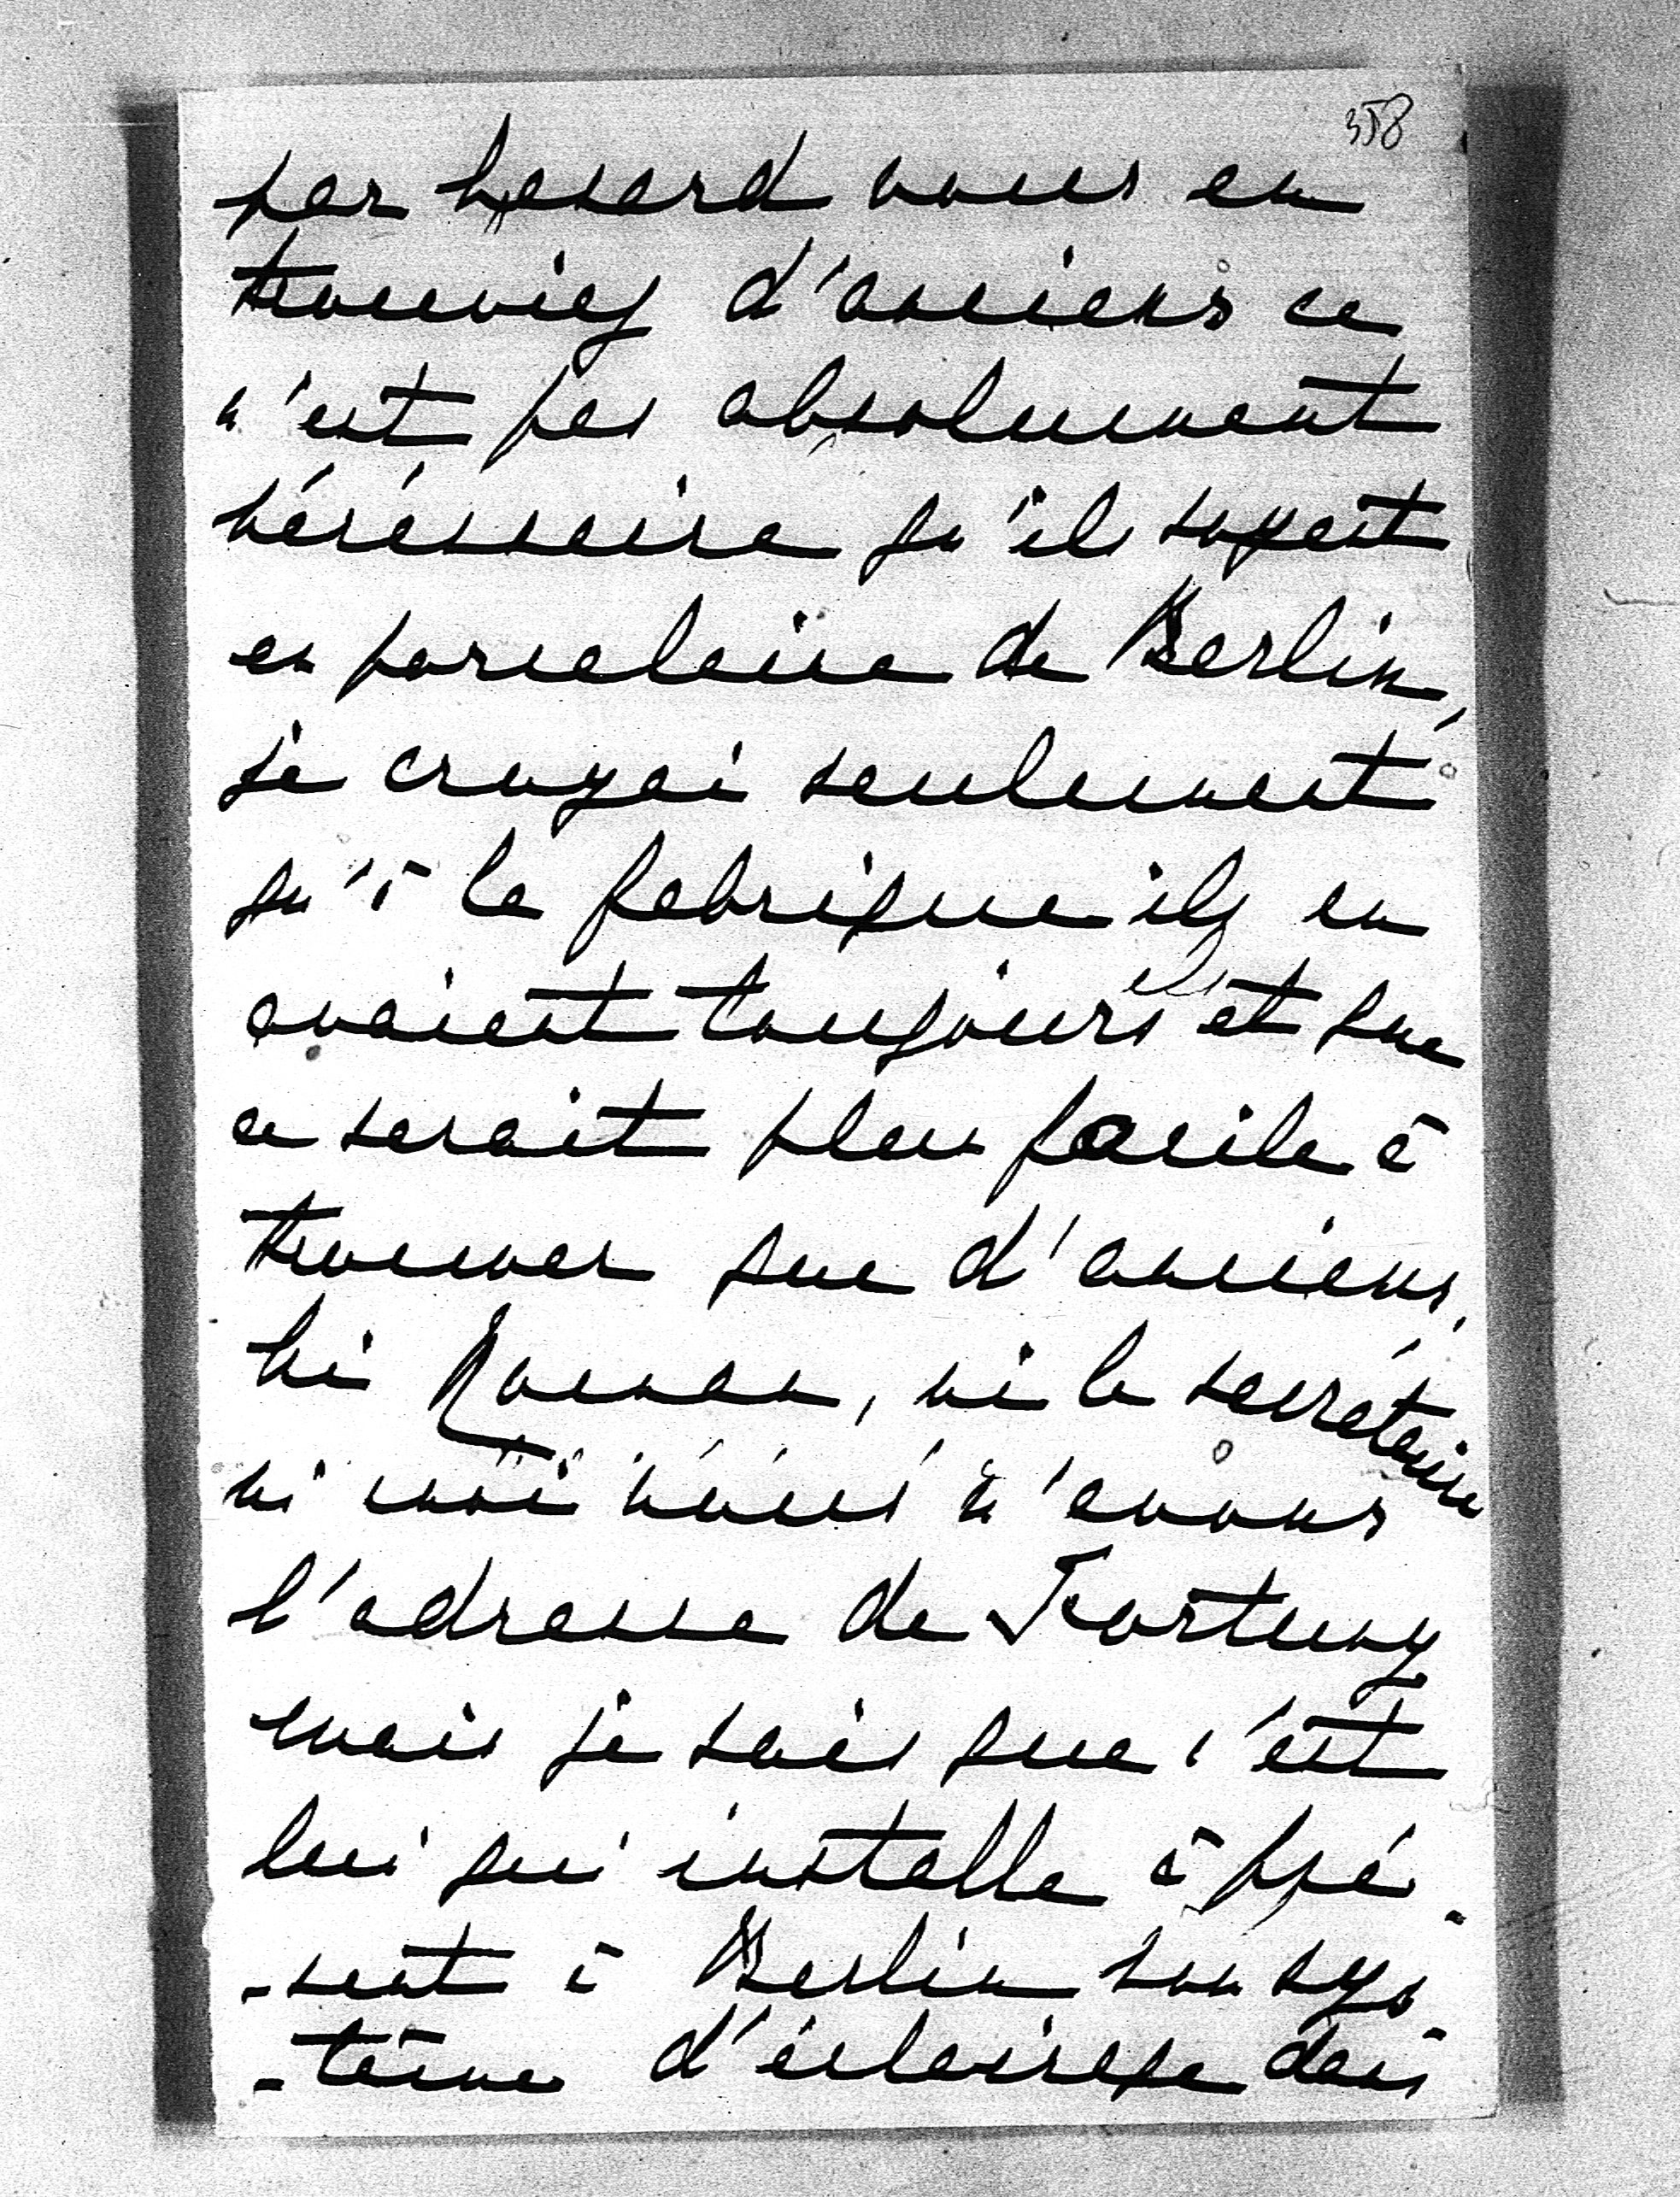 358
par hasard vous en
trouviez d'anciens ce
n'est pas absolument
nécéssaire qu'ils soyent
en porcelaine de Berlin,
je croyai seulement
qu'à la fabrique ils en
avaient toujours et que
ce serait plus facile à
trouver que d'anciens,
ni Rouman, ni la secrétaire
ni moi nous n'avons
l'adresse de Fortuny
mais je sais que c'est
lui qui installe à pré
-sent à Berlin son sys
-tème d'éclairage dans